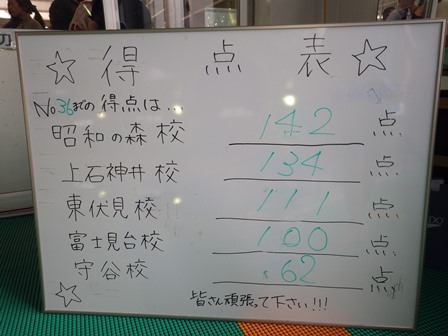 ☆ 得点表 ☆
No.36までの得点は...
昭和の森校 142点
上石神井校 134点
東伏見校 111点
富士見台校 100点
守谷校 62点
☆ 皆さん頑張って下さい!!!